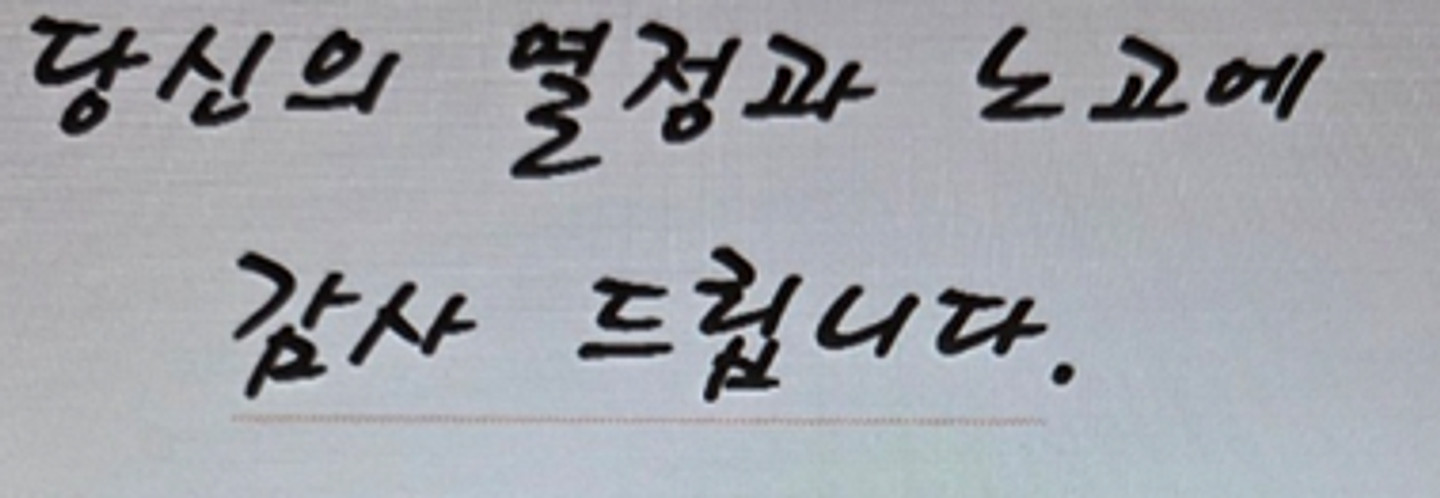 당신의 열정과 노고에
감사 드립니다.